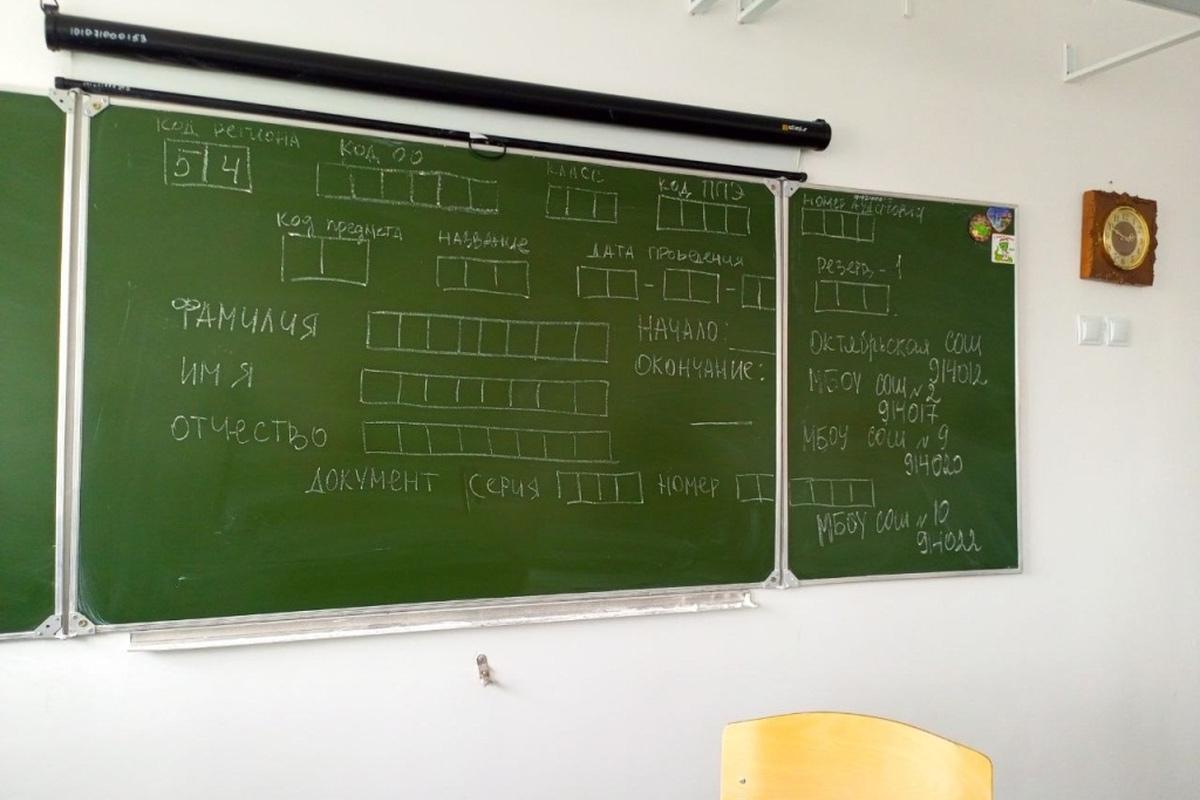 101071000153
КОД РЕГИОНА
КОД ОО
КЛАСС
КОД ППЭ
НОМЕР АУДИТОРИИ
5 4
Код предмета
НАЗВАНИЕ
ДАТА ПРОВЕДЕНИЯ
РЕЗЕРВ - 1
ФАМИЛИЯ
НАЧАЛО:
ИМЯ
ОКОНЧАНИЕ:
ОТЧЕСТВО
ДОКУМЕНТ СЕРИЯ НОМЕР
ОКТЯБРЬСКАЯ СОШ
914012
МБОУ СОШ №2
914017
МБОУ СОШ №9
914020
МБОУ СОШ №10
914022